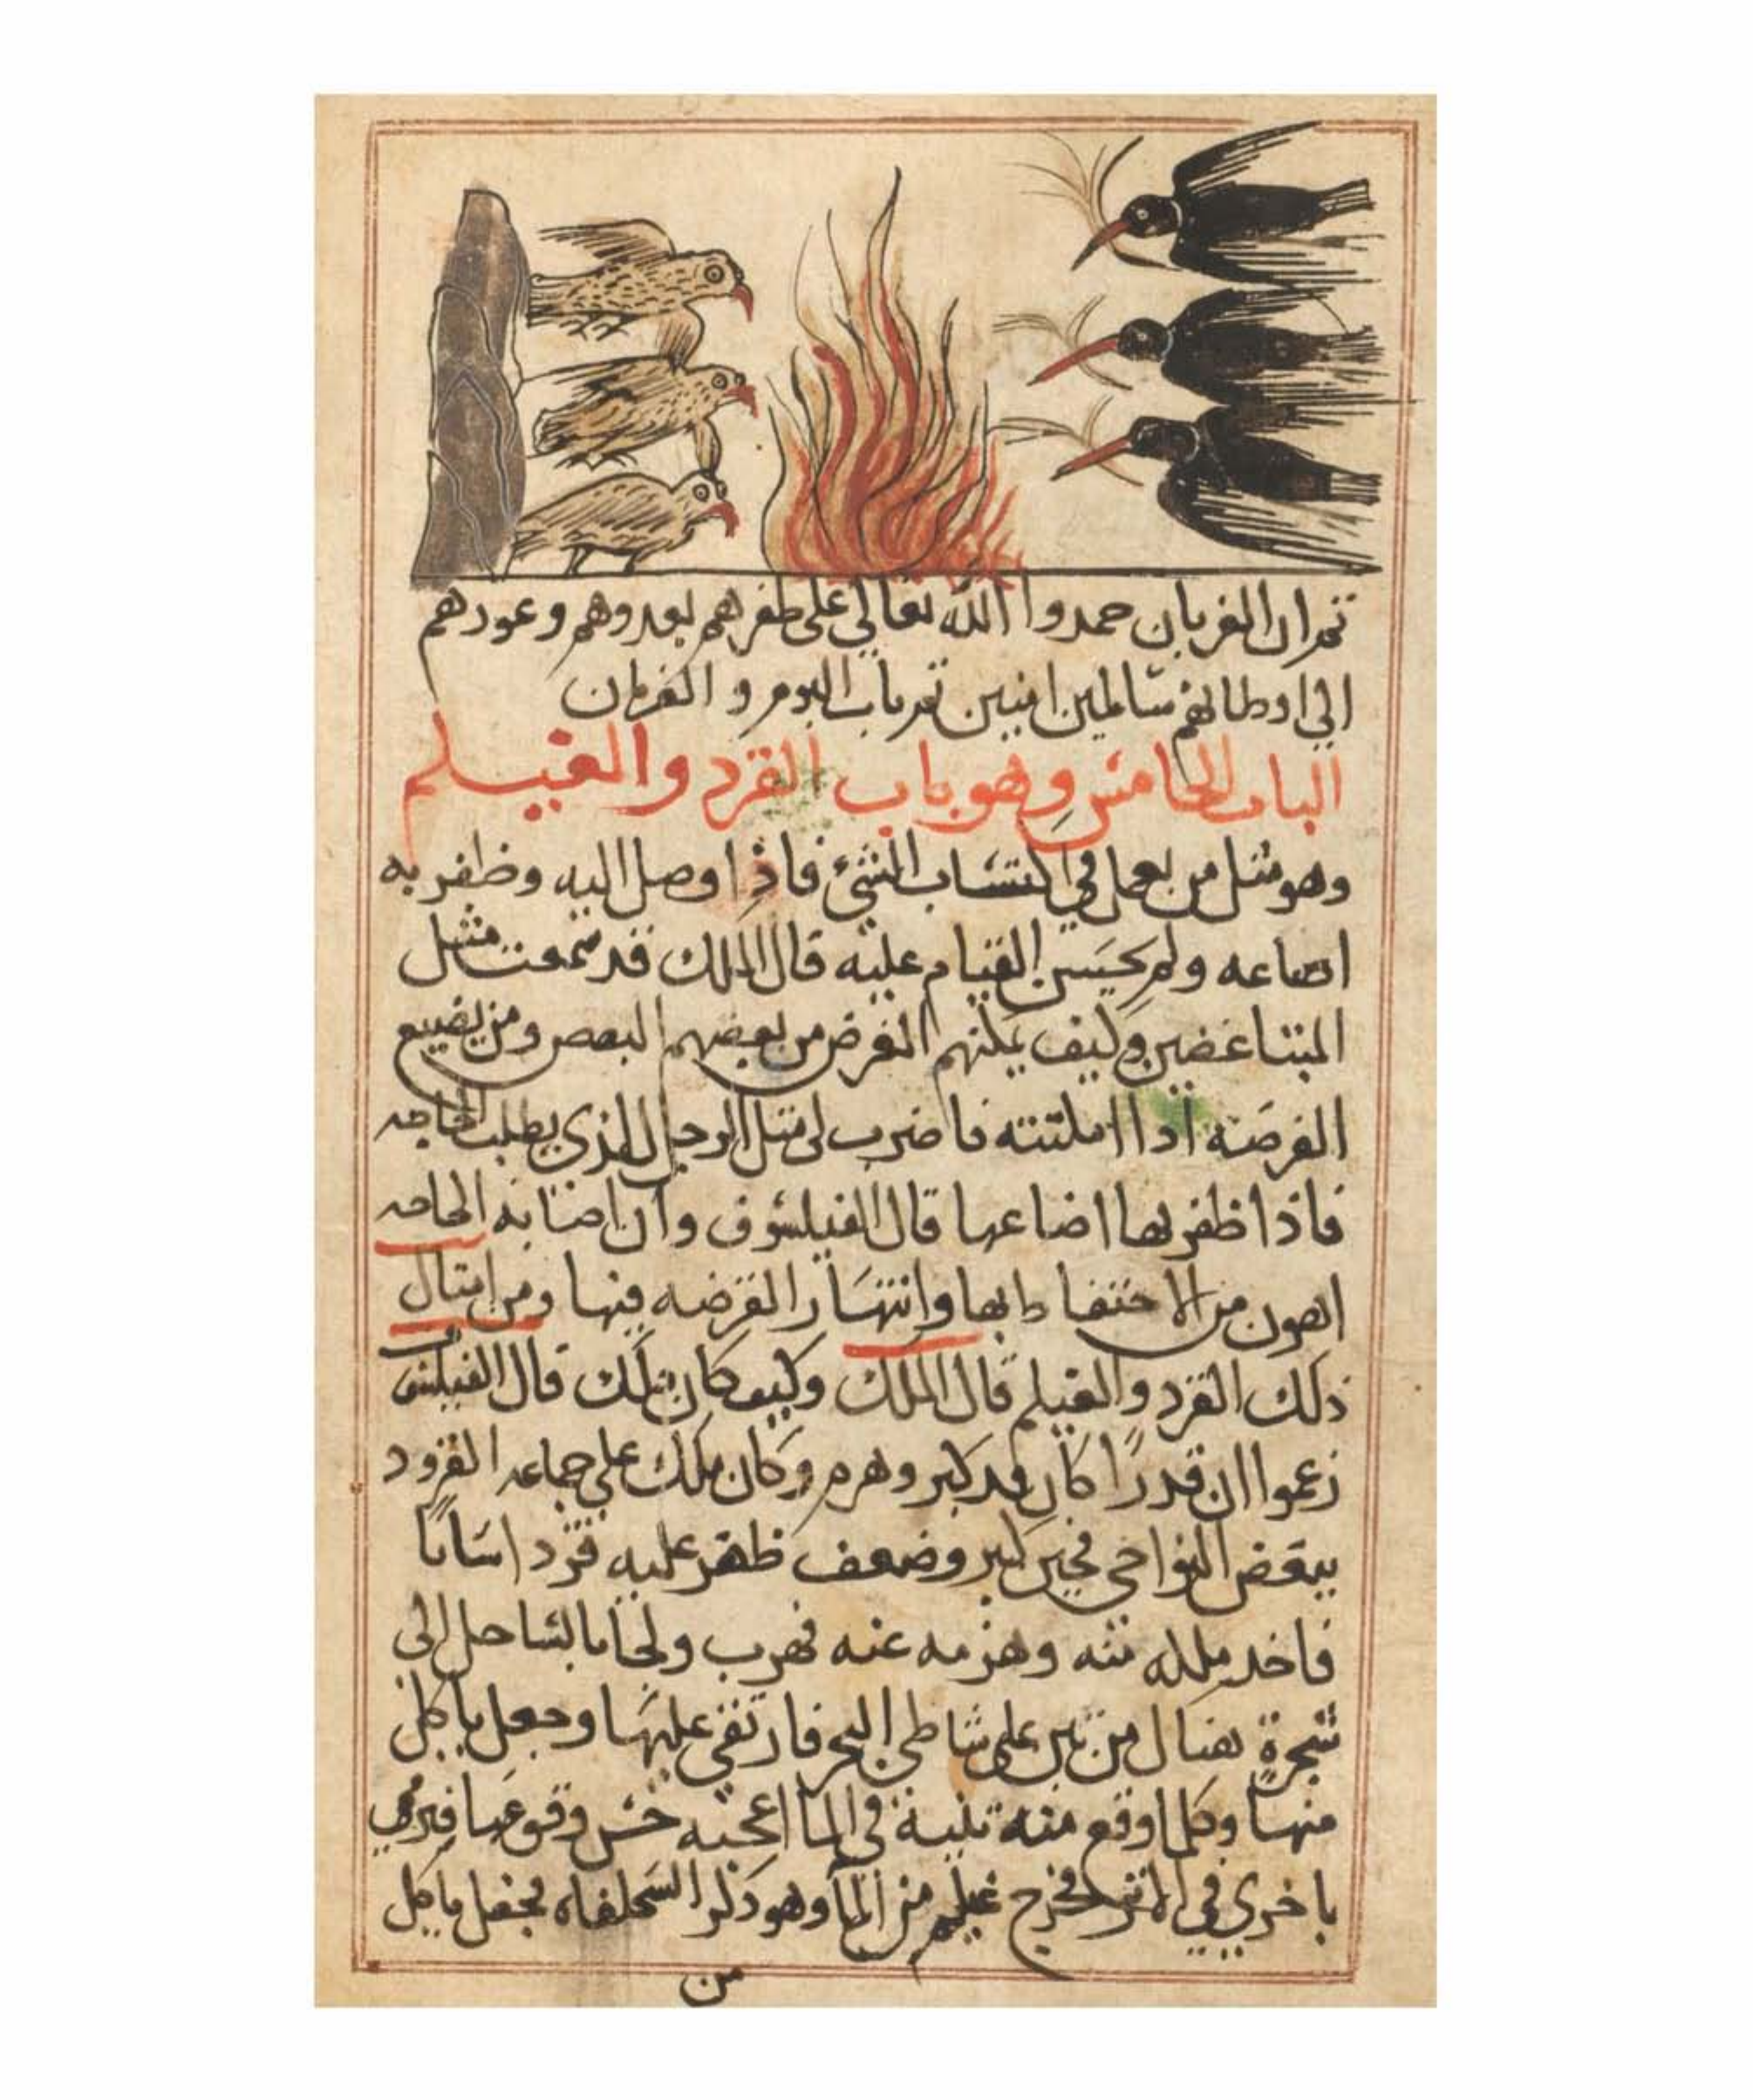 ثم ان الغربان حمدوا الله تعالي على ظفرهم بعدوهم وعودهم
الي اوطانهم سالمين امنين تم باب البوم والغربان
الباب الخامس وهو باب القرد والغيلم
وهو مثل من يعمل في اكتساب الشئ فاذا وصل اليه وظفر به
اضاعه ولم يحسن القيام عليه قال الملك قد سمعت مثل
المتباغضين وكيف يمكنهم الغرض من بعضهم البعض ومن يضيع
الفرصه اذا امكنته فاضرب لي مثل الرجل الذي يطلب الحاجه
فاذا ظفر بها اضاعها قال الفيلسوف وان اصابه الحاجه
اهون من الاحتفاظ بها وانتهار الفرصه فيها ومن امثال
ذلك القرد والغيلم قال الملك وكيف كان ذلك قال الفيلسوف
زعموا ان قدرًا كان قد كبر وهرم وكان ملك على جماعه القرود
ببعض النواحي فحين كبر وضعف ظهر عليه قرد شابا
فاخد ملكه منه وهزمه عنه فهرب ولجا بالساحل الى
شجرة من تين على شاطي البحر فارتقي عليها وجعل ياكل
منها وكلما وقع منه تينة في الما اعجبه حس وقوعها فيرمي
باخري في فخرج غيلم من الما وهو ذكر السحلفاه فجعل ياكل
من